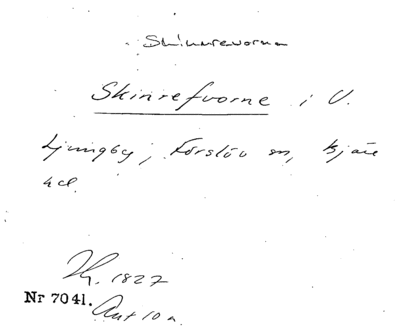 Skinnrevorna
Skinrefvorne i V.
Ljungby, Förslöv sn, Bjäre
hd.
1827
Nr 7041.
Akt 10 a